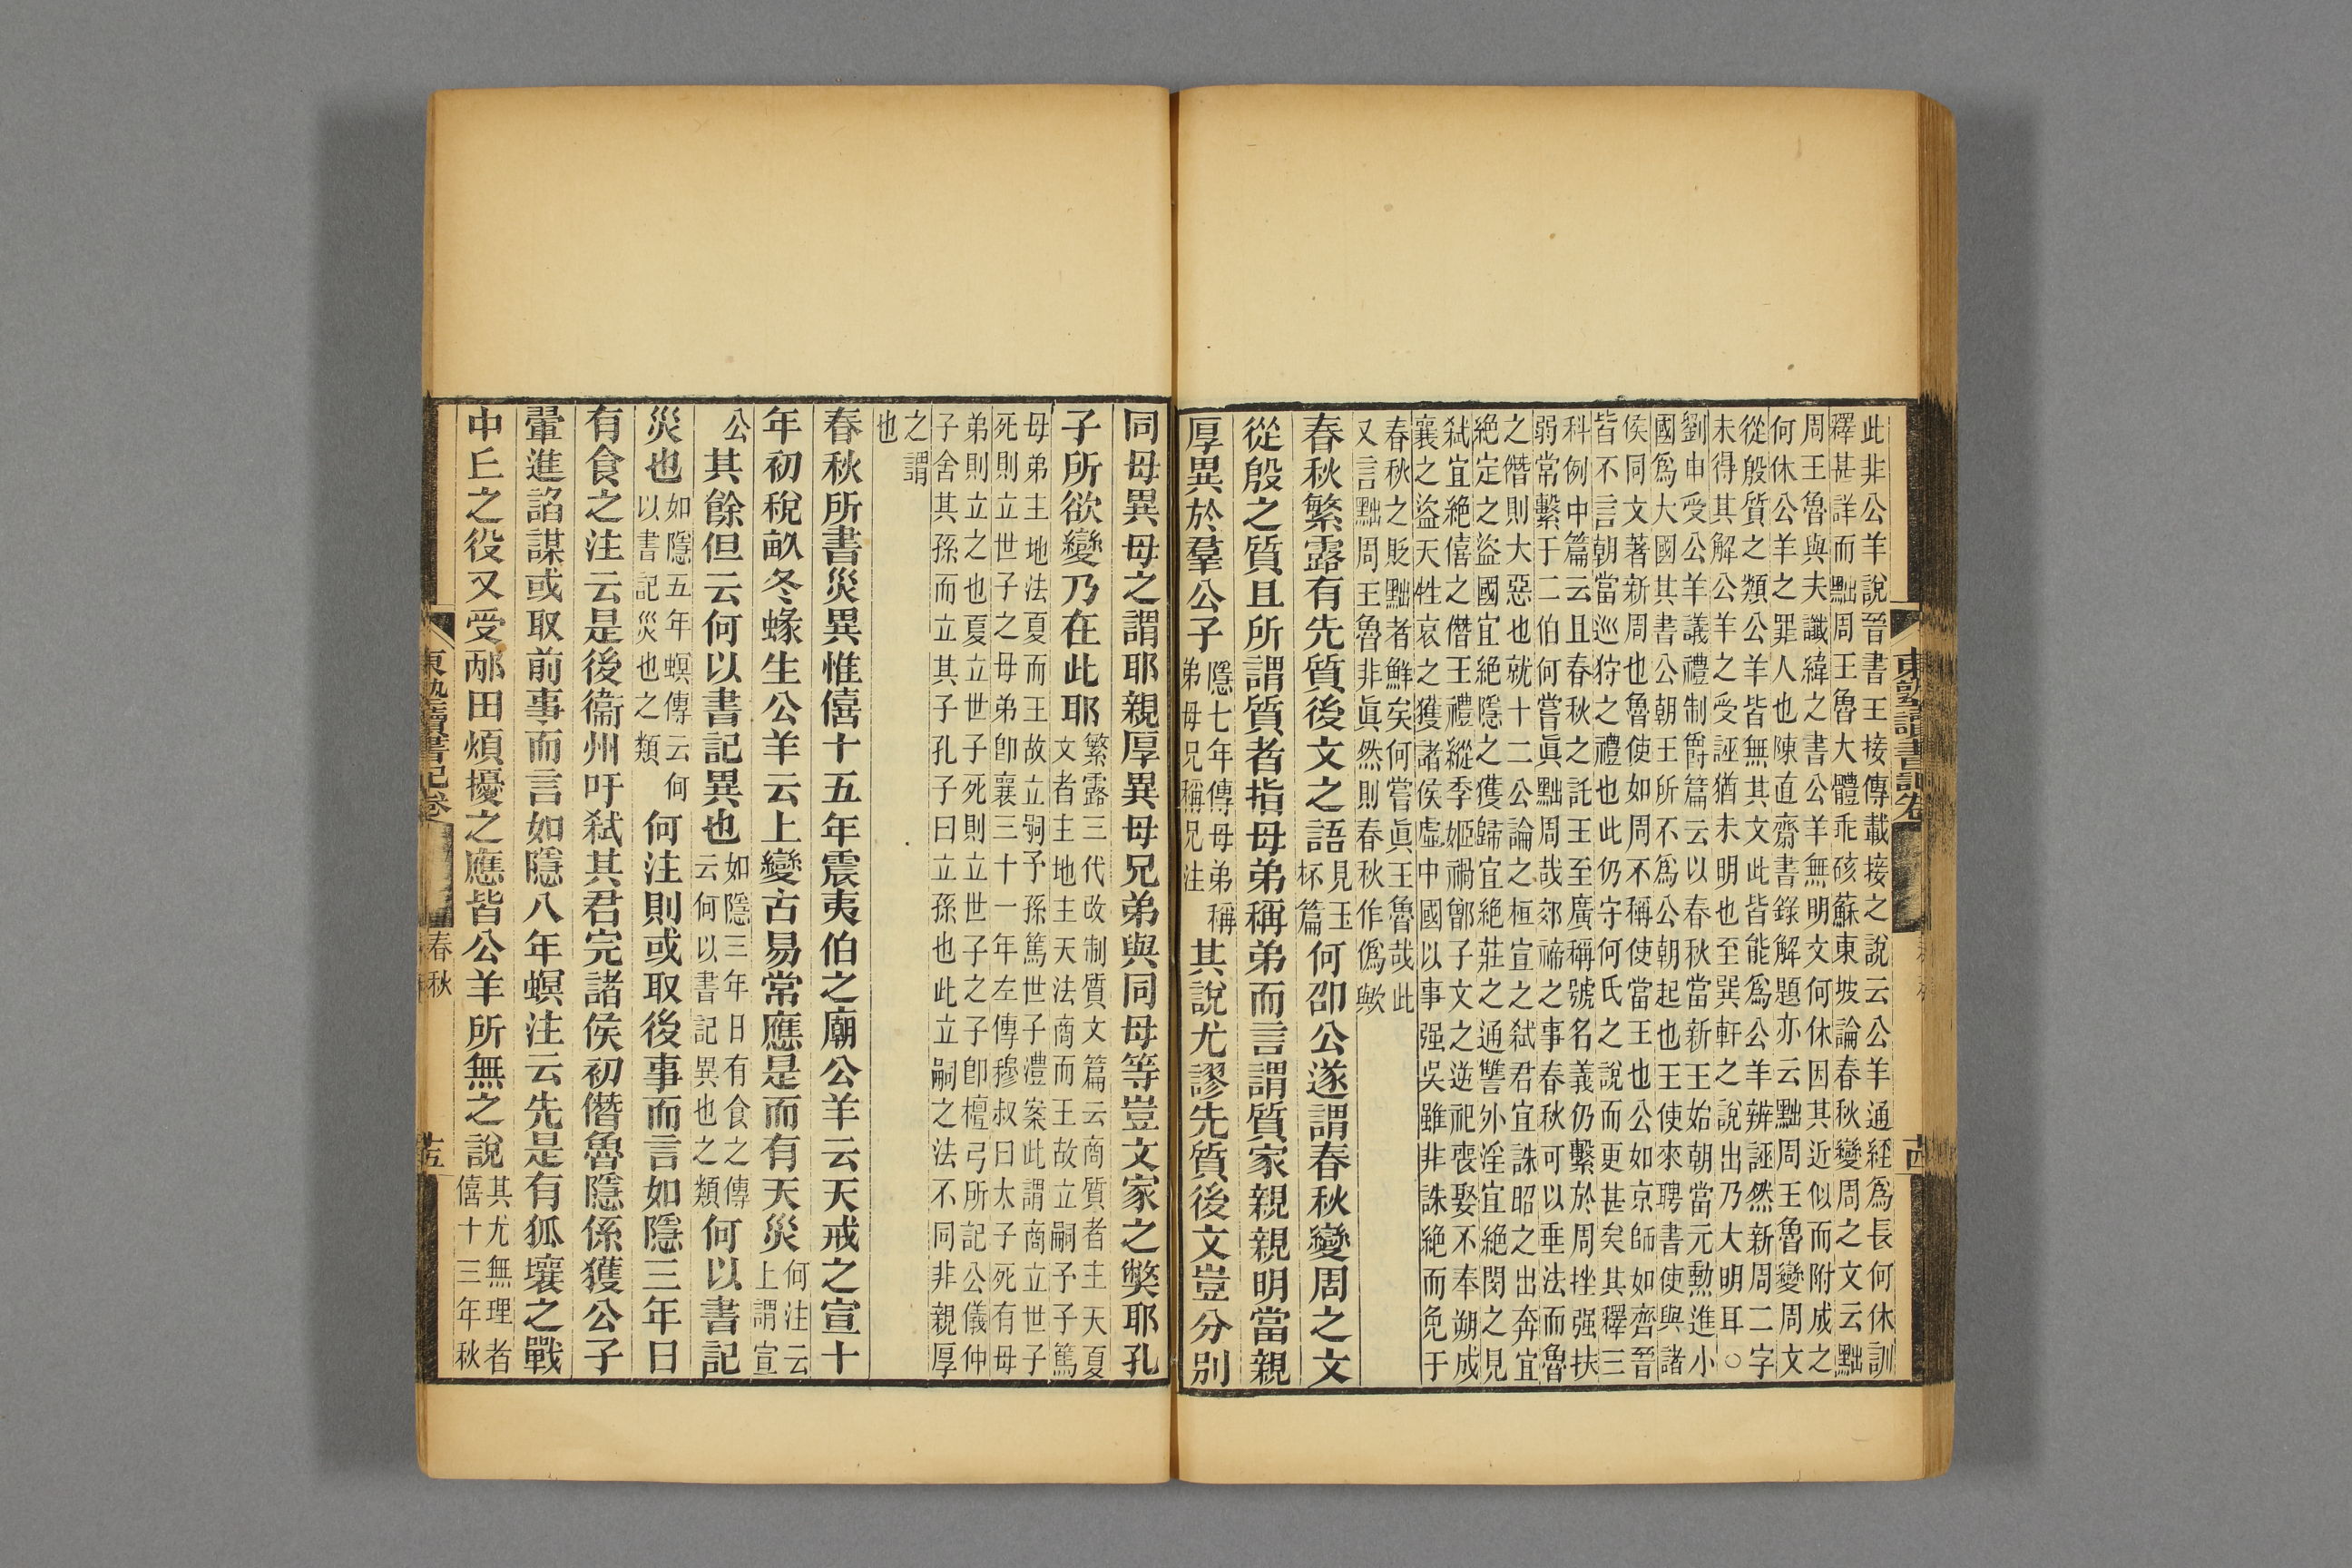 此非公羊說晉書王接傳載接之說云公羊通經為長何休訓
釋甚詳而黜周王魯大體乖硋蘇東坡論春秋變周之文云黜
周王魯與夫讖緯之書公羊無明文何休因其近似而附成之
何休公羊之罪人也陳直齋書錄解題亦云黜周王魯變周文
從殷質之類公羊皆無其文此皆能為公羊辨誣然新周二字
未得其解公羊之受誣猶未明也至巽軒之說出乃大明耳○
劉申受公羊議禮制爵篇云以春秋當新王始朝當元勳進小
國為大國其書公朝王所不為公朝起也王使來聘書使與諸
侯同文著新周也魯使如周不稱使當王也公如京師如齊晉
皆不言朝當巡狩之禮也此仍守何氏之說而更甚矣其釋三
科例中篇云且春秋之託王至廣稱號名義仍繫於周挫强扶
弱常繫于二伯何嘗眞黜周哉郊禘之事春秋可以垂法而魯
之僭則大惡也就十二公論之桓宣之弒君宜誅昭之出奔宜
絕定之盜國宜絕隱之獲歸宜絕莊之通讐外淫宜絕閔之見
弒宜絕僖之僭王禮縱季姬禍鄫子文之逆祀喪娶不奉朔成
襄之盜天牲哀之獲諸侯虛中國以事强吳雖非誅絕而免于
春秋之貶黜者鮮矣何嘗眞王魯哉此
又言黜周王魯非眞然則春秋作僞歟
春秋繁露有先質後文之語見玉杯篇何卲公遂謂春秋變周之文
從殷之質且所謂質者指母弟稱弟而言謂質家親親明當親
厚異於羣公子隱七年傳母弟稱弟母兄稱兄注其說尤謬先質後文豈分別
同母異母之謂耶親厚異母兄弟與同母等豈文家之獘耶孔
子所欲變乃在此耶繁露三代改制質文篇云商質者主天夏文者主地主天法商而王故立嗣予子篤
母弟主地法夏而王故立嗣予孫篤世子禮案此謂商立世子
死則立世子之母弟卽襄三十一年左傳穆叔曰太子死有母
弟則立之也夏立世子死則立世子之子卽檀弓所記公儀仲
子舍其孫而立其子孔子曰立孫也此立嗣之法不同非親厚
之謂
也
春秋所書災異惟僖十五年震夷伯之廟公羊云天戒之宣十
年初稅畝冬蝝生公羊云上變古易常應是而有天災何注云上謂宣
公其餘但云何以書記異也如隱三年日有食之傳云何以書記異也之類何以書記
災也如隱五年螟傳云何以書記災也之類何注則或取後事而言如隱三年日
有食之注云是後衞州吁弒其君完諸侯初僭魯隱係獲公子
翬進諂謀或取前事而言如隱八年螟注云先是有狐壤之戰
中丘之役又受邴田煩擾之應皆公羊所無之說其尤無理者僖十三年秋
東塾讀書記卷
春秋
十四
東塾讀書記卷
春秋
十五